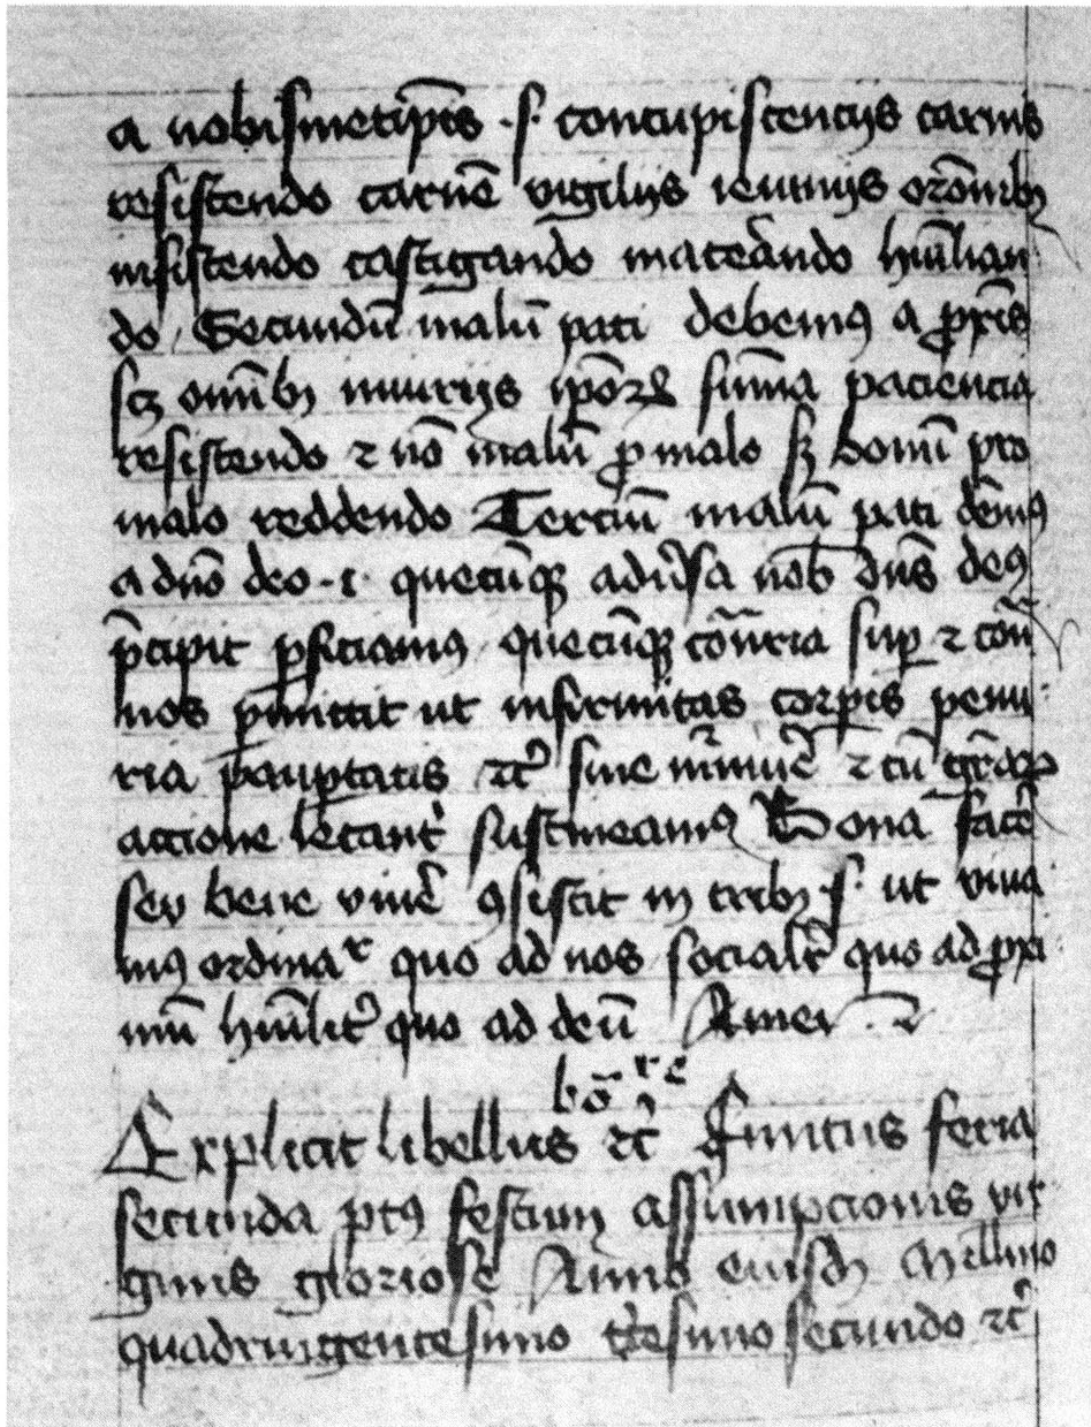 a nobismetip̄is .s. concupiscencijs carnis
resistendo carnē vigilijs ieiunijs or̄onibꝫ
insistendo castigando maceādo hūilian
do Secundū malū pati debemꝰ a ꝓxīs
scꝫ om̄ibꝫ iniurijs ip̄oꝝ sūma paciencia
resistendo ⁊ nō malū ꝓ malo sꝫ bonū pro
malo reddendo Terciū malū pati dēmꝰ
a dn̄o deo .i. quecūqꝫ adv̓sa nob̄ dn̄s deꝰ
p̄cipit ꝑficiamꝰ quecūqꝫ cōn̄ria suꝑ ⁊ con̄
nos ꝑmittit ut infirmitas corꝑis penu
ria pauꝑtatis ⁊c̓ sine mͬmuē ⁊ cū gr̄aꝝ
accione letant̓ sustineamꝰ Bona facē
seu bene viuē ꝯsistit in tribꝫ .s. ut viua
mꝰ ordinaͬ quo ad nos socialr̄ quo ad ꝓxi
mū hūilit̓ quo ad deū Amen
bō
Explicit libellus ⁊c̓ finitus feria
secunda ptꝰ festum assumpcionis vir
ginis gloriose Anno eiusdē Millīo
quadringentesimo t̓cesimo secundo ⁊c̓